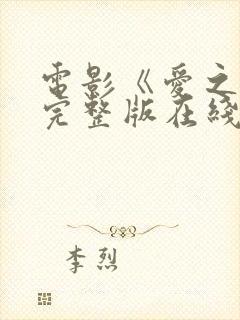 電影《愛之
完整版在綫
李烈